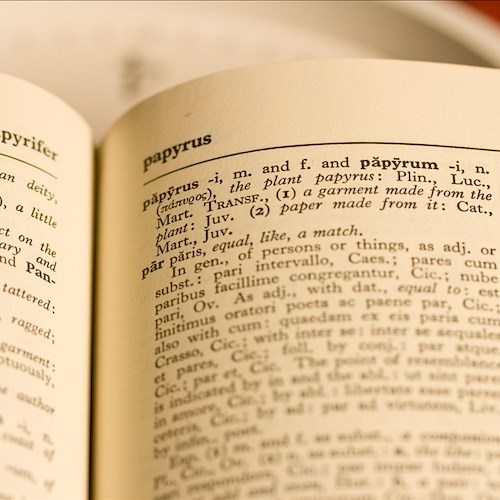 pyrifer
an deity,
), a little
ct on the
ary and
nd Pan-
tattered:
, ragged;
garment:
ptuously,
e author
-i, n.
papyrus
păpȳrus -i, m. and f. and păpȳrum -i, n.
(πάπυρος), the plant papyrus: Plin., Luc.,
Mart. TRANSF., (1) a garment made from the
plant: Juv. (2) paper made from it: Cat.,
Mart., Juv.
pār păris, equal, like, a match.
In gen., of persons or things, as adj. or
subst.: pari intervallo, Caes.; pares cum
paribus facillime congregantur, Cic.; nube
pari, Ov. As adj., with dat., equal to: est
finitimus oratori poeta ac paene par, Cic.;
also with cum: quaedam ex eis paria cum
Crasso, Cic.; with inter se: inter se aequales
et pares, Cic.; foll. by conj.: par atque
Cic.; par et, Cic. The point of resemblance
is indicated by in and the abl.: ut sint pares
in amore, Cic.; by abl.: libertate esse parem
ceteris, Cic.; by ad: par ad virtutem, Liv.
by infin., poet.